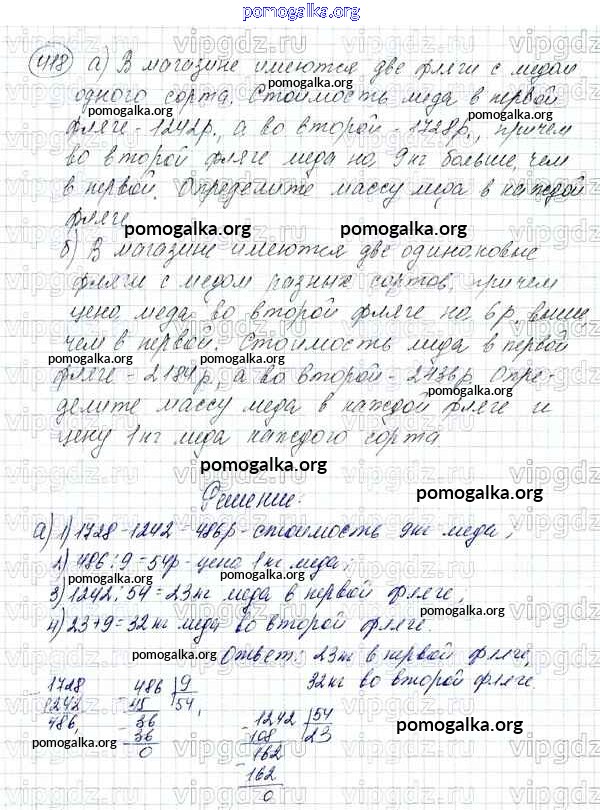 pomogalka.org
418 а) В магазине имеются две фляги с медом
одного сорта. Стоимость меда в первой
фляге - 1242р., а во второй - 1728р., причем
во второй фляге меда на 9кг больше, чем
в первой. Определите массу меда в каждой
фляге.
pomogalka.org
б) В магазине имеются две одинаковые
фляги с медом разных сортов, причем
цена меда во второй фляге на 6р. выше
чем в первой. Стоимость меда в первой
pomogalka.org pomogalka.org
фляге - 2184р, а во второй - 2436р. Опре-
делите массу меда в каждой фляге и
pomogalka.org
цену 1кг меда каждого сорта
pomogalka.org
Решение: pomogalka.org
а) 1) 1728-1242=486р - стоимость 9кг меда;
2) 486:9=54р - цена 1кг меда;
pomogalka.org
3) 1242:54=23кг меда в первой фляге;
4) 23+9=32кг меда во второй фляге
pomogalka.org pomogalka.org
Ответ: 23кг в первой фляге,
32кг во второй фляге.
1728 486 9
1242 45 54,
486, 36
36
0
1242 54
108 23
162
162
0
pomogalka.org
pomogalka.org
pomogalka.org
pomogalka.org